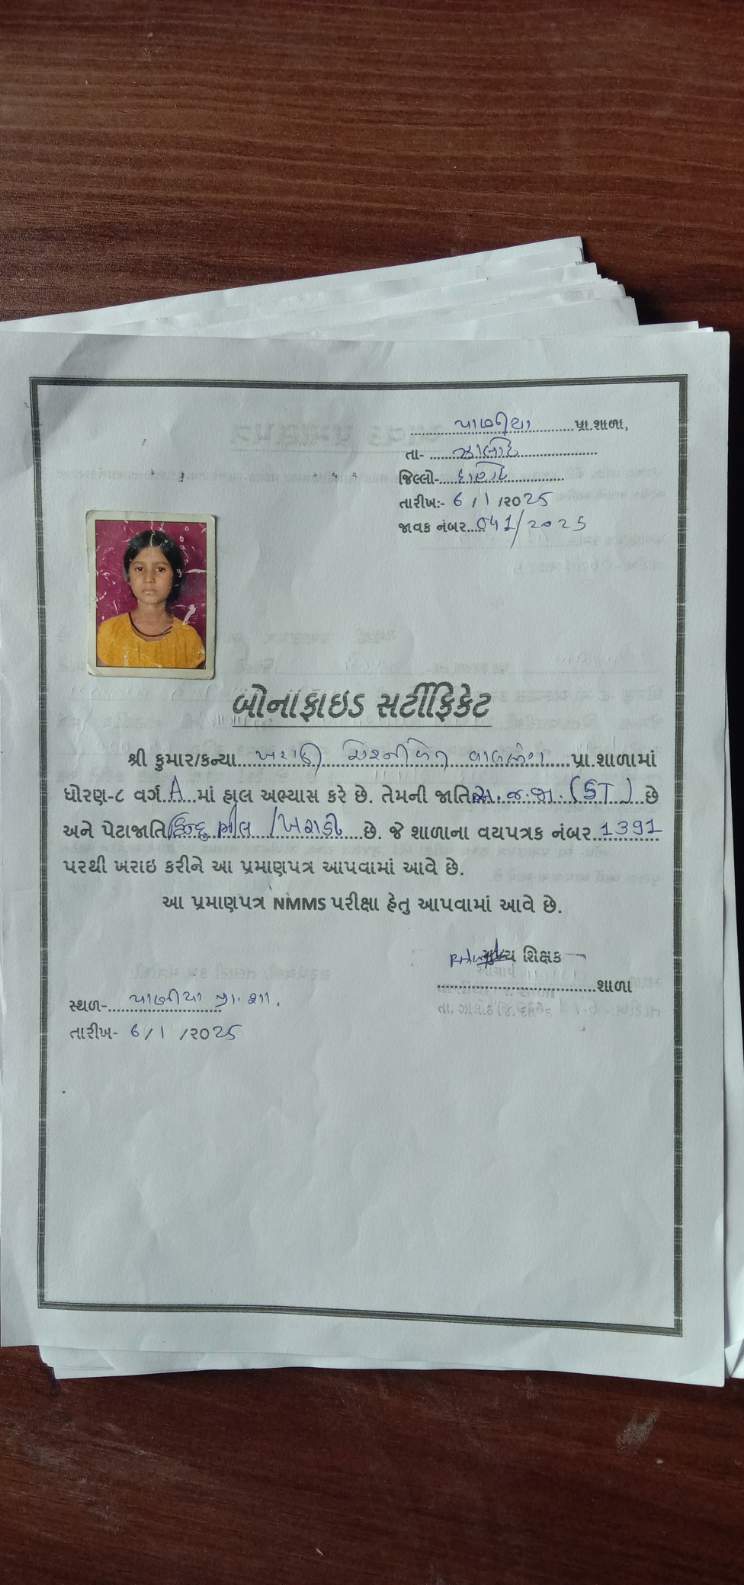 પાણીયા પ્રા.શાળા,
તા- ઝાલોદ
જિલ્લો- દાહોદ
તારીખ:- 6/1/2025
જાવક નંબર..041/2025
બોનાફાઇડ સર્ટીફિકેટ
શ્રી કુમાર/કન્યા ખરાડી પ્રા.શાળામાં
ધોરણ-૮ વર્ગ A માં હાલ અભ્યાસ કરે છે. તેમની જાતિ અ.જ.જા. (ST) છે
અને પેટાજાતિ હિન્દુ ભીલ/ખરાડી છે. જે શાળાના વયપત્રક નંબર 1391
પરથી ખરાઇ કરીને આ પ્રમાણપત્ર આપવામાં આવે છે.
આ પ્રમાણપત્ર NMMS પરીક્ષા હેતુ આપવામાં આવે છે.
મુખ્ય શિક્ષક
શાળા
સ્થળ- પાણીયા પ્રા.શા.
તારીખ- 6/1/2025